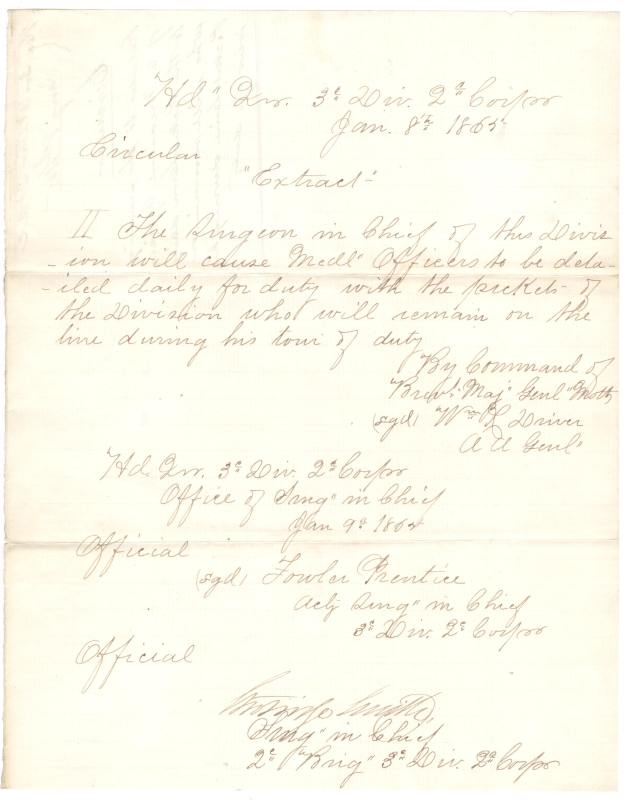 Hd" Qrs. 3d Div. 2d Corps
Jan. 8th 1865
Circular
"Extract"
II The Surgeon in Chief of this Divis-
-ion will cause Medl" Officers to be deta-
-iled daily for duty with the pickets of
the Division who will remain on the
line during his tour of duty
By Command of
"Brevt. Maj" Genl" Mott,
(sgd) "Wm R Driver
A A Genl"
Hd. Qrs. 3d Div. 2d Corps
Office of Surg" in Chief
Jan 9th 1865
Official
(sgd) Fowler Prentice
Actg Surg" in Chief
3d Div. 2d Corps
Official
Smith,
Surg" in Chief
2d "Brig" 3d Div. 2d Corps